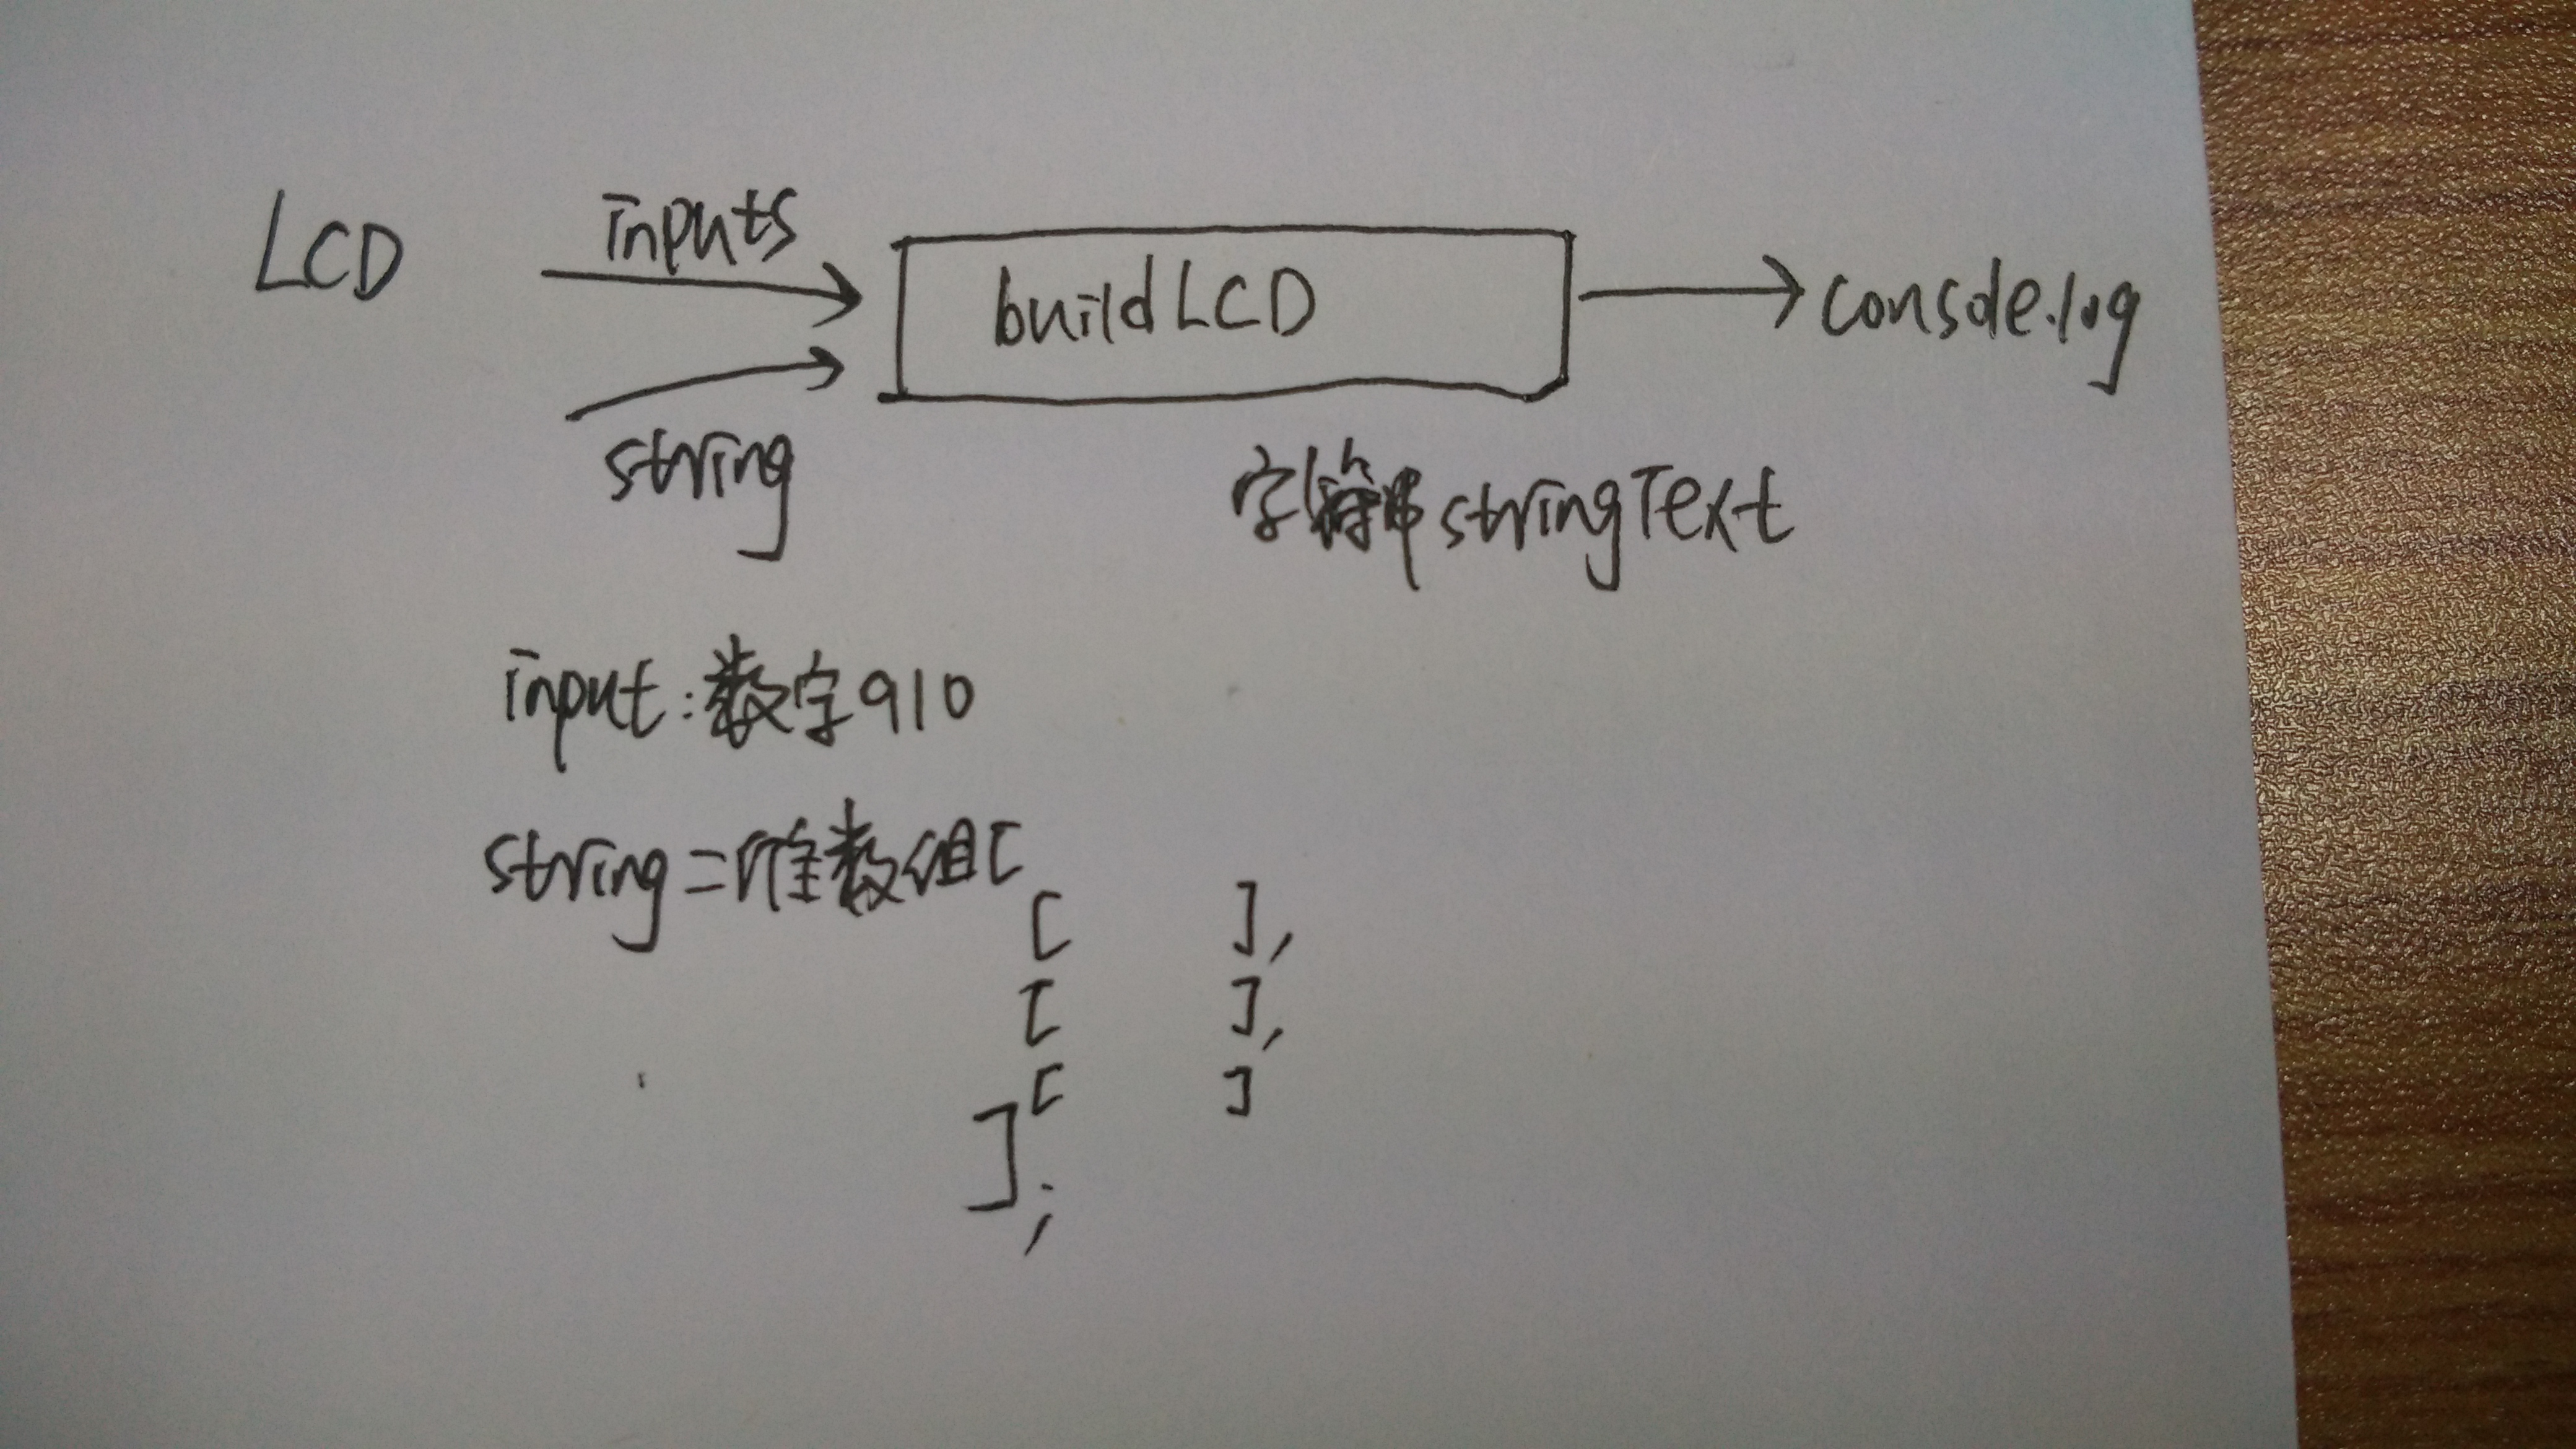 LCD inputs buildLCD console.log
string
字符串stringText
input:数字910
string=二维数组[
[ ],
[ ],
[ ]
];